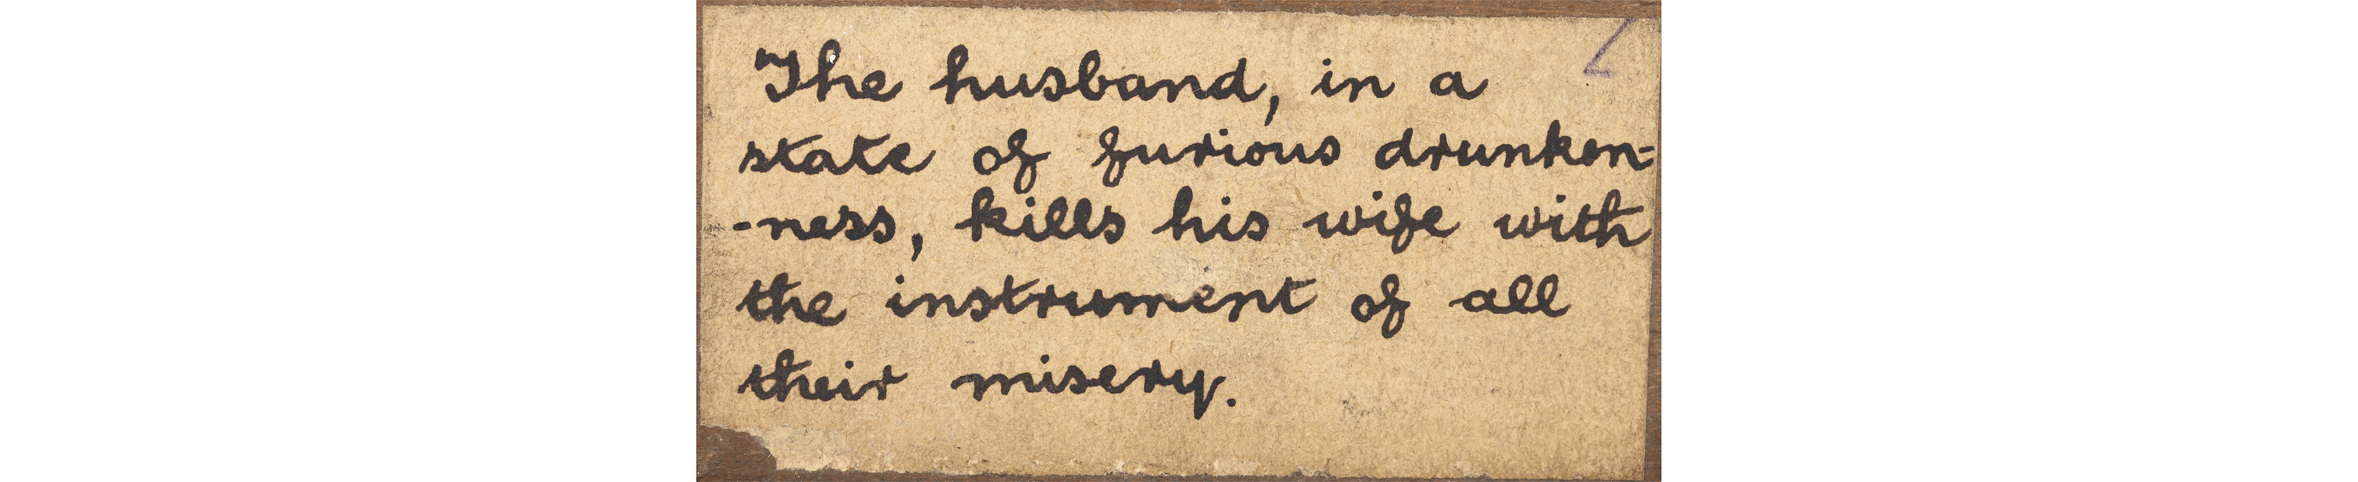 The husband, in a
state of furious drunken-
-ness, kills his wife with
the instrument of all
their misery.